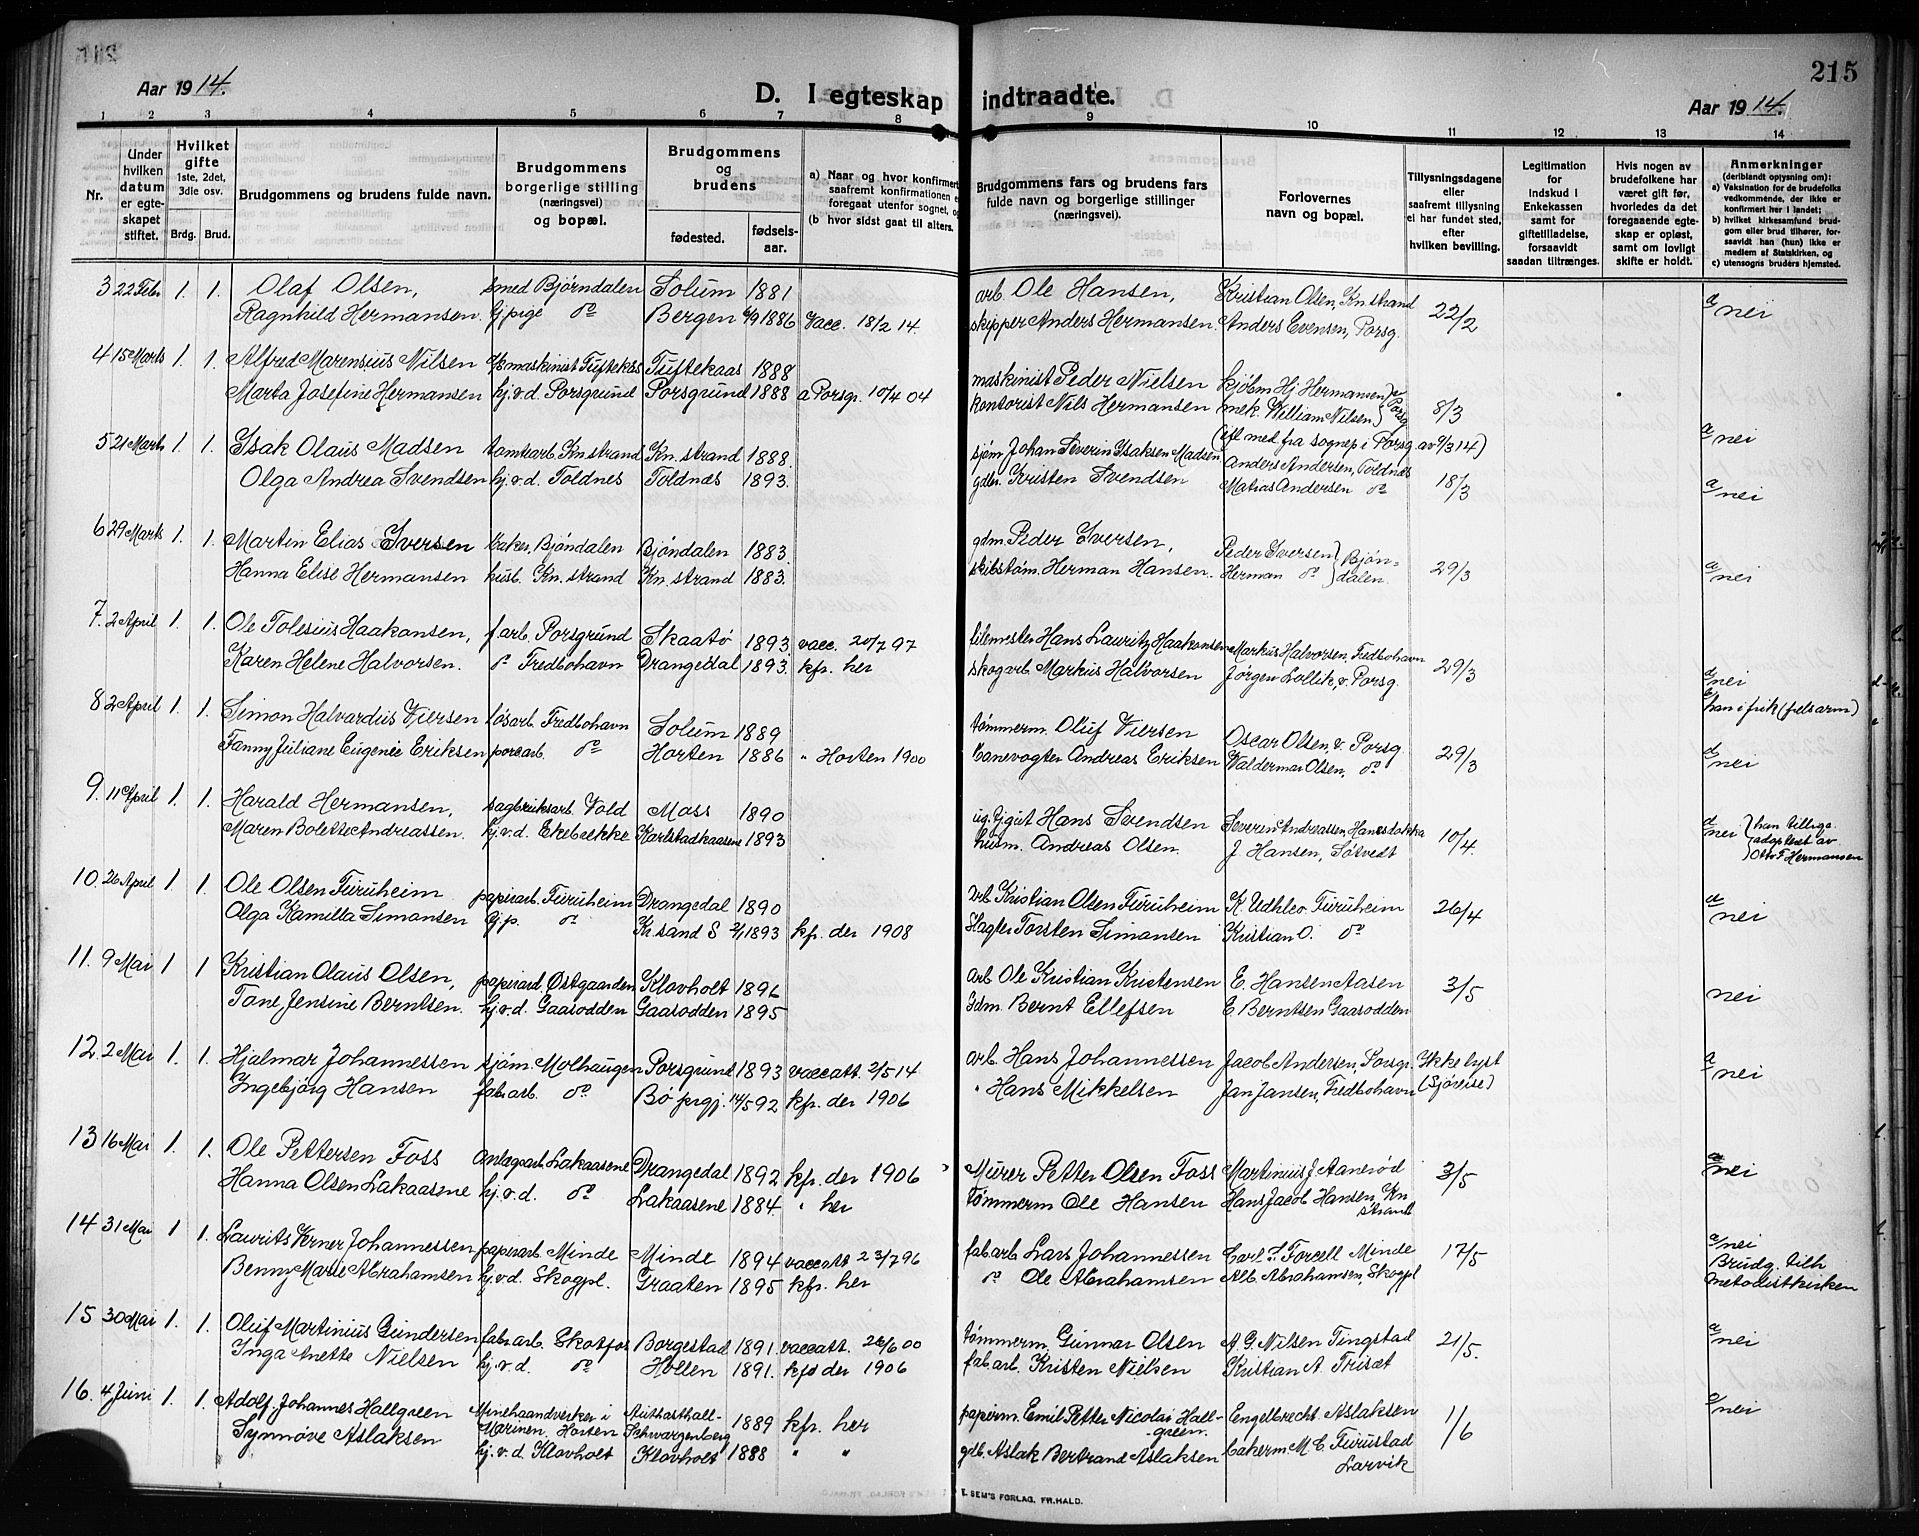 215
Aar 1914.
D. I egteskap indtraadte.
Aar 1914.
1 2 3 4 5 6 7 8 9 10 11 12 13 14
Nr.
Under hvilken datum er egteskapet stiftet.
Hvilket gifte 1ste, 2det, 3die osv.
Brdg. Brud.
Brudgommens og brudens fulde navn.
Brudgommens borgerlige stilling (næringsvei) og bopæl.
Brudgommens og brudens
fødested.
fødselsaar.
a) Naar og hvor konfirmert saafremt konfirmationen er foregaat utenfor sognet, og
(b hvor sidst gaat til alters.
Brudgommens fars og brudens fars fulde navn og borgerlige stillinger (næringsvei).
Forlovernes navn og bopæl.
Tillysningsdagene eller saafremt tillysning ei har fundet sted, efter hvilken bevilling.
Legitimation for indskud i Enkekassen samt for giftetilladelse, forsaavidt saadan tiltrænges.
Hvis nogen av brudefolkene har været gift før, hvorledes da det foregaaende egteskap er opløst, samt om lovligt skifte er holdt.
Anmerkninger (deriblandt oplysning om): a) Vaksination for de brudefolks vedkommende, der ikke er konfirmert her i landet; b) hvilket kirkesamfund brudgom eller brud tilhører, forsaavidt han (hun) ikke er medlem af Statskirken, og c) utensogns bruders hjemsted.
3 22 Febr 1. 1. Olaf Olsen, smed Bjørndalen Solum 1881 arb. Ole Hansen, Kristian Olsen, Kn.strand 22/2 a/nei
Ragnhild Hermansen. hj.pige do Bergen 6/9 1886 Vacc. 18/2 14. skipper Anders Hermansen. Anders Evensen, Porsg.
4 15 Marts 1. 1. Alfred Marensius Nilsen maskinist Tuftekaas Tuftekaas 1888 maskinist Peder Nielsen kjøbm Hj Hermansen 8/3
Marta Josefine Hermansen hj.v.d. Porsgrund Porsgrund 1888 a Porsgr. 10/4 04 kontorist Nils Hermansen mek. William Nilsen Porsg a/nei
(efl med. fra sognep i Porsg. av 9/3 14)
5 21 Marts 1. 1. Isak Olaus Madsen tomtearb. Kn.strand Kn. strand 1888. sjøm Johan Severin Isaksen Madsen Anders Andersen, Toldnæs 18/3
Olga Andrea Svendsen hj.v.d. Toldnes Toldnæs 1893. gdbr. Kristen Svendsen Matias Andersen do a/nei
6 29 Marts 1. 1. Martin Elias Iversen baker, Bjøndalen Bjøndalen 1883. gdm. Peder Iversen, Peder Iversen Bjøndalen. 29/3
Hanna Elise Hermansen husb. Kn. strand Kn. strand 1883. skibstøm. Herman Hansen. Herman do a/nei
7. 2 April 1. 1. Ole Tolesius Haakonsen, f.arb. Porsgrund Skaatø 1893. vacc. 20/7 97 Hans Lauritz Haakonsen Markus Halvorsen, Fredbohavn 29/3
Karen Helene Halvorsen. do Fredbohavn Drangedal 1893. kfr. her skogarb. Markus Halvorsen Jørgen Lollik, v. Porsg. a/nei
8 2 April 1. 1. Simon Halvardus Viersen løsarb. Fredbohavn Solum 1889 tømmerm. Oluf Viersen Oscar Olsen, v. Porsg. 29/3 han i frik (frelsarm)
Fanny Juliane Eugenie Eriksen porc.arb. do Horten 1886 " Horten 1900 banevogter Andreas Eriksen Waldemar Olsen, do a/nei
9. 11 April 1. 1. Harald Hermansen, sagbruksarb. Vold Moss 1890 ug. Hans Svendsen Severin Andreassen, Hanestakka 10/4. a/nei han tillige adopteret av Otto F Hermansen
Maren Bolette Andreassen. hj.v.d. Ekebrekke Karlstadkaasene 1893 husm. Andreas Olsen. J. Hansen, Søtvedt
10. 26 April 1 1. Ole Olsen Furuheim papirarb. Furuheim Drangedal 1890 arb. Kristian Olsen Furuheim K. Furuheim 26/4 a/nei
Olga Kamilla Simonsen hj.p. do Kr.sand S 2/1 1893 kfr. der 1908 Slagter Torsten Simonsen Kristian O. do
11. 9 Mai 1 1 Kristian Olaus Olsen, papirarb. Østgaarden Klovholt 1896 arb Ole Kristian Kristensen E. Hansen Aasen 3/5 nei
Tone Jensine Berntsen. hj.v.d. Gaasodden Gaasodden 1895 Gdm. Bernt Ellefsen E. Berntsen Gaasodden
12. 2 Mai 1. 1. Hjalmar Johannessen sjøm. Molhaugen Porsgrund 1893 vaccatt. 2/5 14 arb. Hans Johannessen Jacob Andersen, Porsgr. Ikke lyst a/nei
Ingebjørg Hansen fabr.arb. do Bø prgj. 14/5 92 kfr. der 1906 " Hans Mikkelsen Jan Jansen, Fredbohavn (Sjøreise)
13 16 Mai 1. 1. Ole Pettersen Foss anlægsarb. Lakaasene Drangedal 1892 kfr. der 1906 Murer Petter Olsen Foss Martinius J. Aanerød 3/5 a/nei
Hanna Olsen Lakaasene hj.v.d. do Lakaasene 1884. " her tømmerm Ole Hansen Hans Jacob Hansen, Kn strand
14 31 Mai 1 1. Laurits Verner Johannessen papirarb. Minde Minde 1894 vaccatt 23/7 96 fab.arb. Lars Johannessen Carl F. Forcell Minde 17/5 a/nei Brudg. tilh metodistkirken
Benny Marie Abrahamsen hj.v.d. Skogpl. Graaten 1895 kfr. her do Ole Abrahamsen Alb. Abrahamsen, Skogpl
15 30 Mai 1. 1. Oluf Martinius Gundersen fabr.arb. Skotfos Borgestad 1891. vaccatt. 26/6 00 tømmerm. Gunnar Olsen A. G. Nilsen Tingstad 21/5. a/nei
Inga Anette Nielsen hj.v.d. do Hollen 1891. kfr der 1906 fab.arb. Kristen Nielsen Kristian A. Trisæt
16. 4 Juni 1. 1. Adolf Johannes Hallgreen Minehaandverker i Marinen, Horten Schwargenberg 1889 kfr. her papirm. Emil Petter Nicolai Hallgreen. Engelbrecht Aslaksen 1/6 a/nei
Synnøve Aslaksen hj.v.d. Klovholt Klovholt 1888 " " gdb. Aslak Bertrand Aslaksen bakerm. M. C. Furustad Larvik
E. SEM'S FORLAG, FR.HALD.